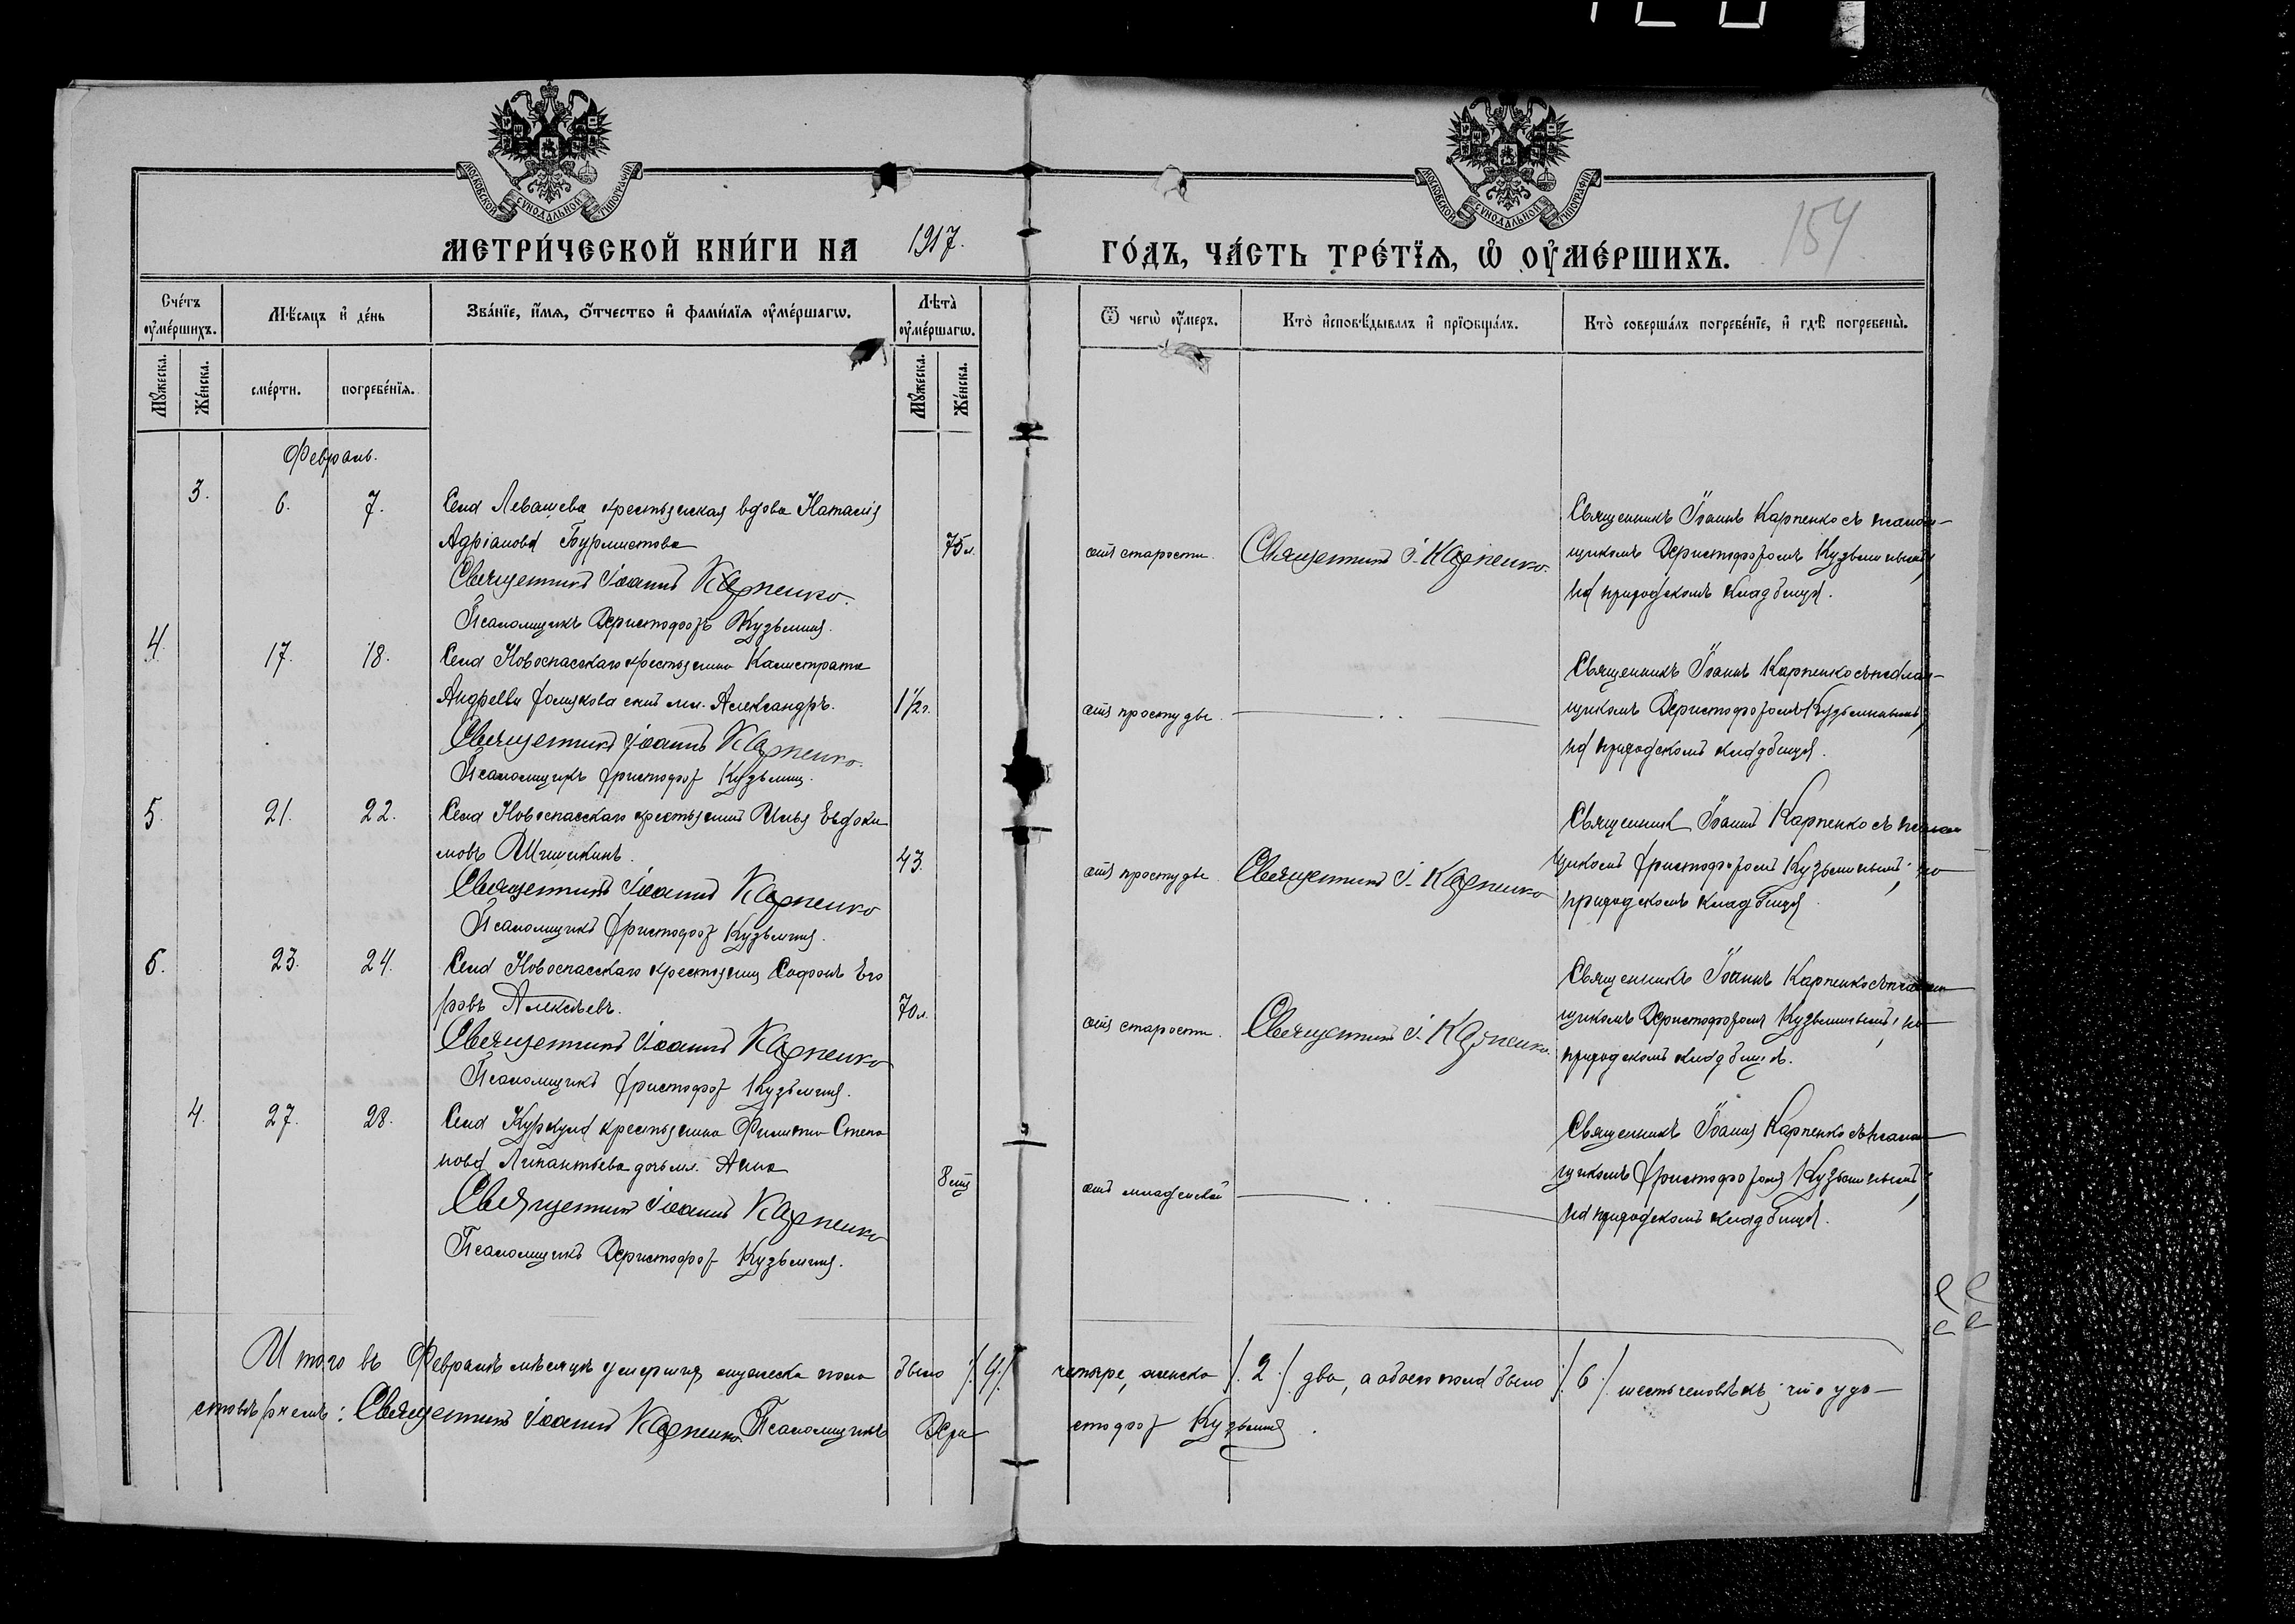 МОСКОВСКОЙ СУНОДАЛЬНОЙ ТИПОГРАФІИ
МОСКОВСКОЙ СУНОДАЛЬНОЙ ТИПОГРАФІИ
МЕТРИ́ЧЕСКОЙ КНИ́ГИ НА 1917. ГО́ДЪ, ЧА́СТЬ ТРЕ́ТЇѦ, Ѡ҆ ОУ҆МЕ́РШИХЪ.
154
Сче́тъ оу҆ме́ршихъ.
Мѣ́сяцъ и҆ де́нь
Зва́нїе, и҆́мѧ, ѻ҆́тчество и҆ фами́лїѧ оу҆ме́ршагѡ.
Лѣта̀ оу҆ме́ршагѡ.
Ѿ чегѡ̀ оу҆́меръ.
Кто̀ и҆сповѣ́дывалъ и҆ прїѻбща́лъ.
Кто̀ соверша́лъ погребе́нїе, и҆ гдѣ̀ погребены̀.
Мꙋ́жеска.
Же́нска.
сме́рти.
погребе́нїѧ.
Мꙋ́жеска.
Же́нска.
Февраль.
3. 6. 7. Села Левашева крестьянская вдова Наталія
Адріанова Бурмистова 75 л.
Священникъ Іоаннъ Карпенко.
Псаломщикъ Христофоръ Кузьминъ.
отъ старости.
Священникъ І. Карпенко.
Священникъ Іоаннъ Карпенко съ псалом-
щикомъ Христофоромъ Кузьминымъ,
на приходскомъ кладбищѣ.
4. 17. 18. Села Новоспасскаго крестьянина Калистрата
Андреева сынъ мл. Александръ. 1½ г.
Священникъ Іоаннъ Карпенко.
Псаломщикъ Христофоръ Кузьминъ.
отъ простуды.
Священникъ Іоаннъ Карпенко съ псалом-
щикомъ Христофоромъ Кузьминымъ,
на приходскомъ кладбищѣ.
5. 21. 22. Села Новоспасскаго крестьянинъ Илья Евдоки
мовъ Шишкинъ. 43.
Священникъ Іоаннъ Карпенко
Псаломщикъ Христофоръ Кузьминъ.
отъ простуды
Священникъ І. Карпенко
Священникъ Іоаннъ Карпенко съ псалом
щикомъ Христофоромъ Кузьминымъ, на
приходскомъ кладбищѣ.
6. 23. 24. Села Новоспасскаго крестьянинъ Софронъ Его
ровъ Алексѣевъ. 70 л.
Священникъ Іоаннъ Карпенко
Псаломщикъ Христофоръ Кузьминъ.
отъ старости.
Священникъ І. Карпенко.
Священникъ Іоаннъ Карпенко съ псалом
щикомъ Христофоромъ Кузьминымъ, на
приходскомъ кладбищѣ.
4. 27. 28. Села крестьянина Филиппа Степа
нова дочь мл. Анна 8
Священникъ Іоаннъ Карпенко
Псаломщикъ Христофоръ Кузьминъ.
отъ младенской
Священникъ Іоаннъ Карпенко съ псалом
щикомъ Христофоромъ Кузьминымъ,
на приходскомъ кладбищѣ.
Итого въ Февралѣ мѣсяцѣ умершихъ мужеска пола было /:4:/ четыре, женска /:2:/ два, а обоего пола было /:6:/ шесть человѣкъ; что удо-
стовѣряемъ: Священникъ Іоаннъ Карпенко. Псаломщикъ Хри стофоръ Кузьминъ.